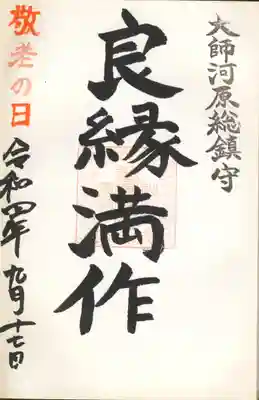 大師河原総鎮守
良縁満作
敬老の日
令和四年 九月十七日